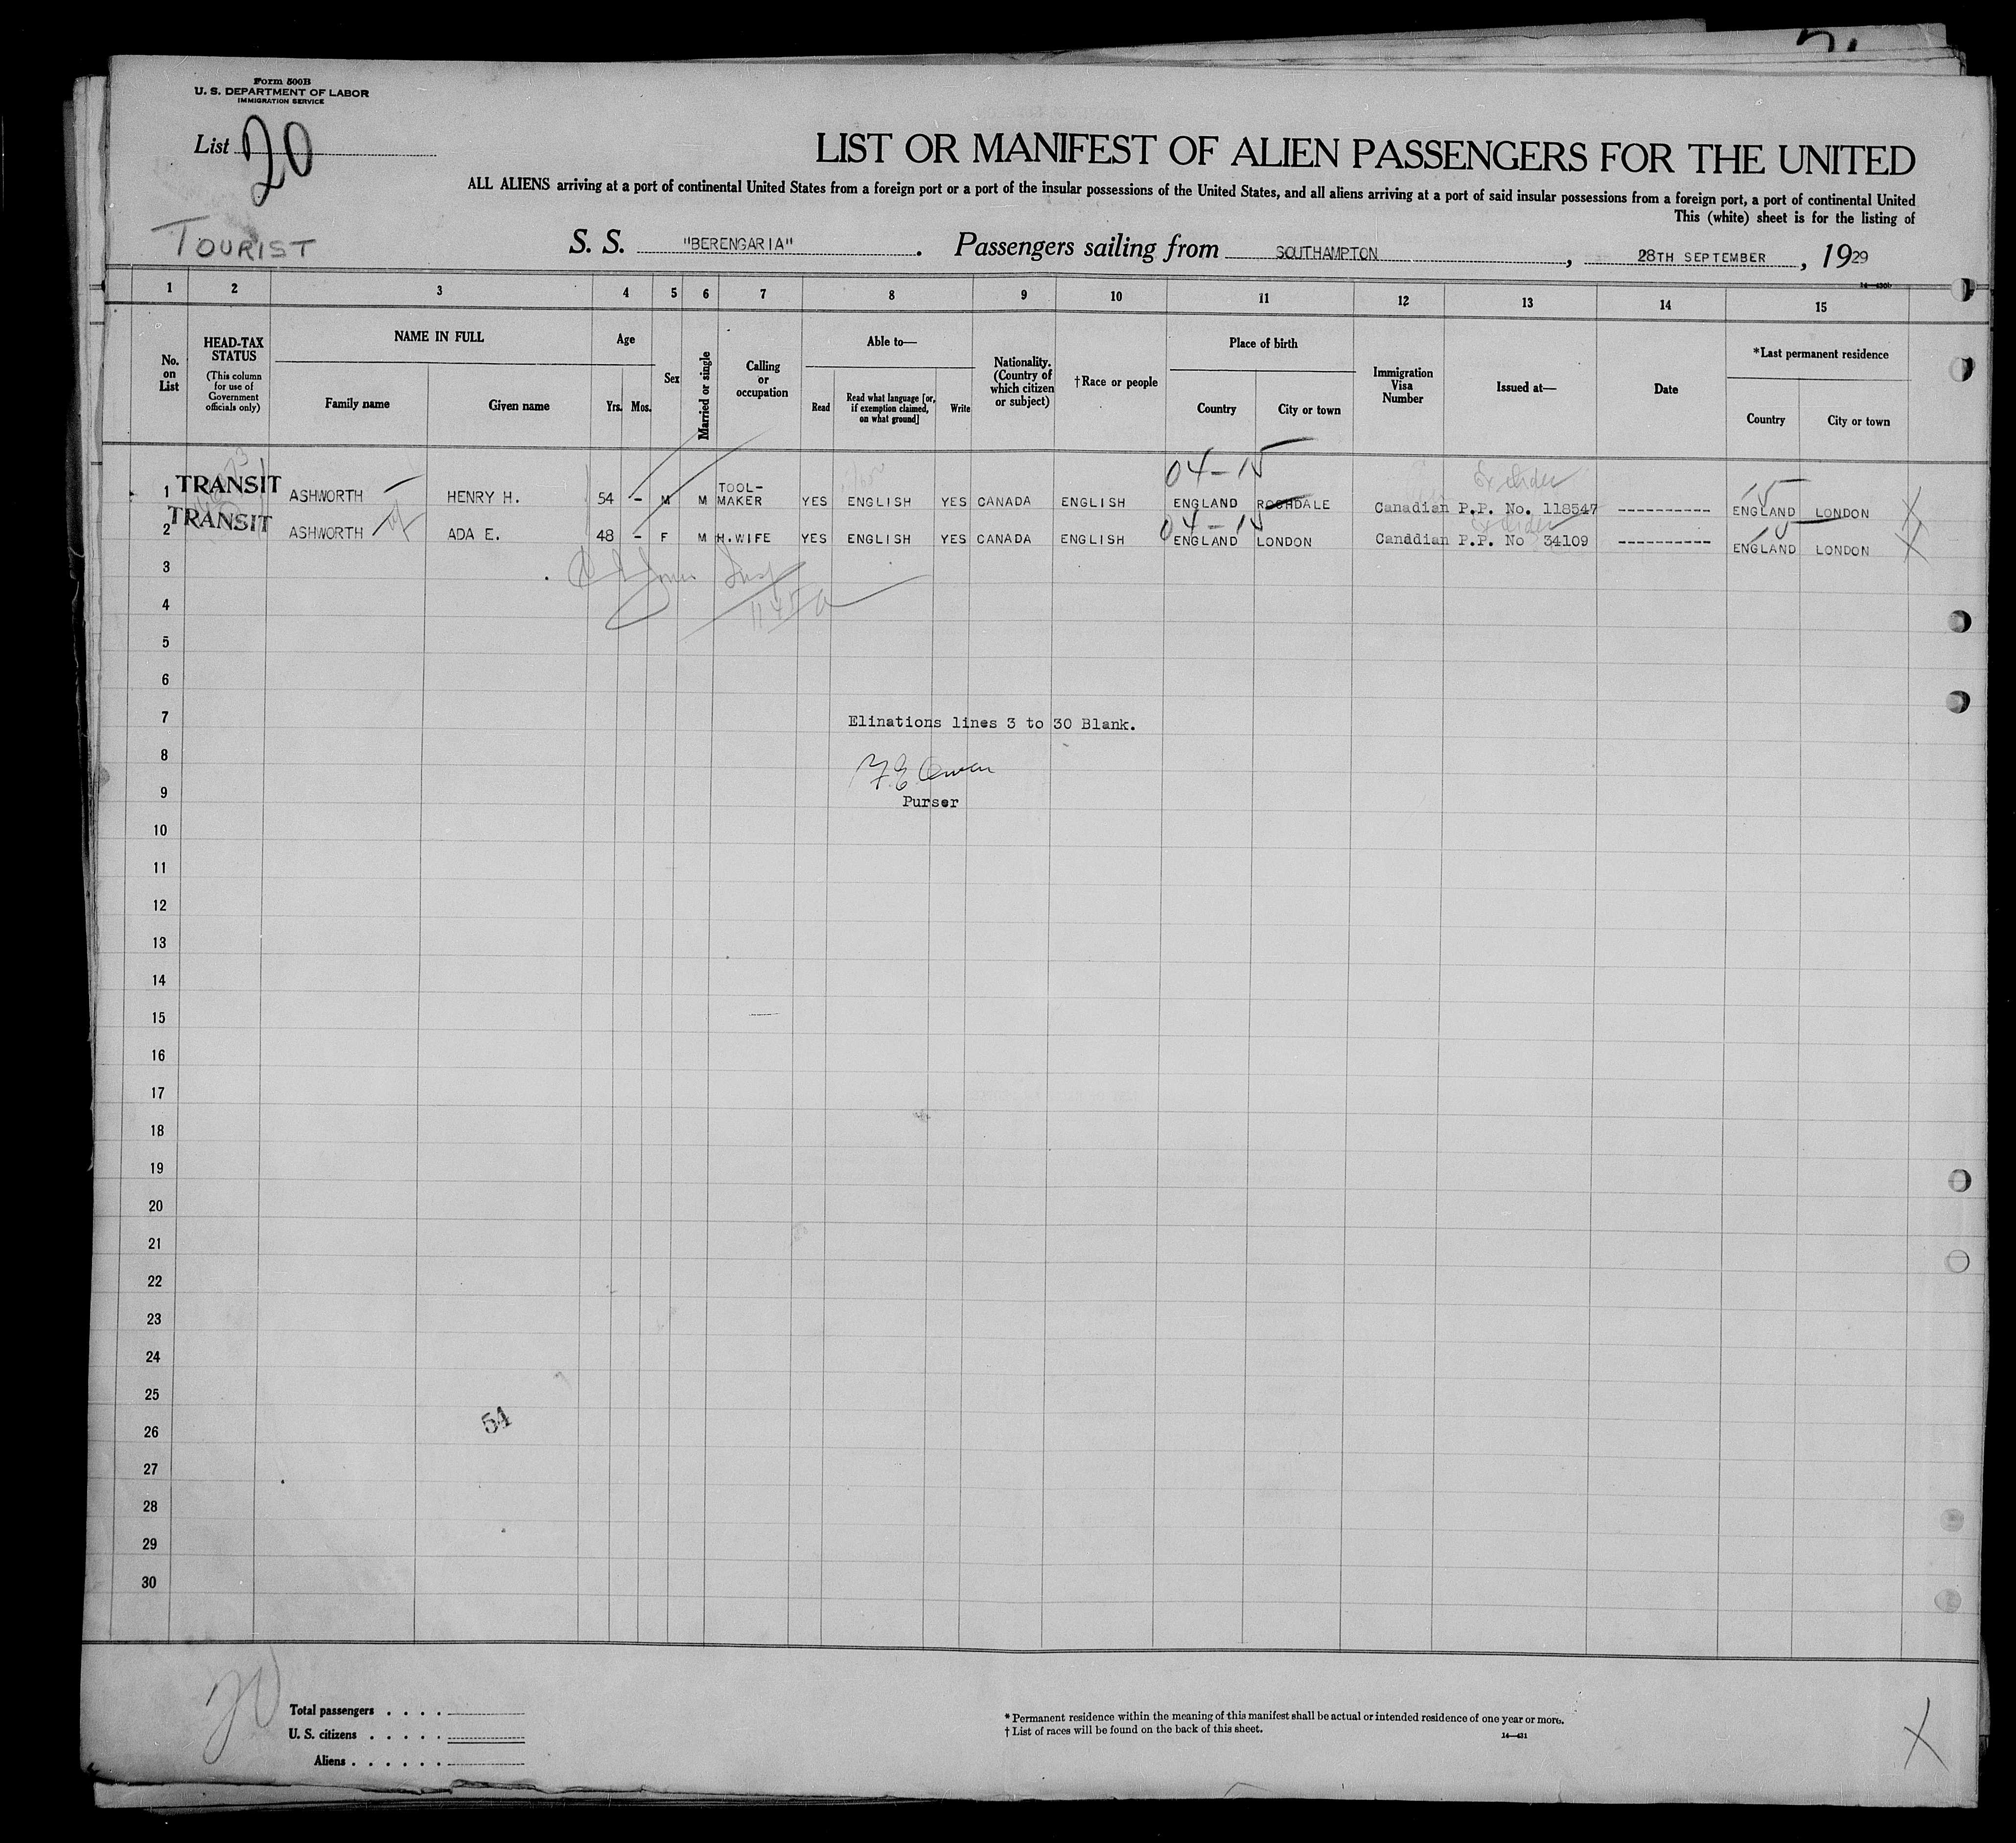 Form 500B
U. S. DEPARTMENT OF LABOR
IMMIGRATION SERVICE
List 20
LIST OR MANIFEST OF ALIEN PASSENGERS FOR THE UNITED
ALL ALIENS arriving at a port of continental United States from a foreign port or a port of the insular possessions of the United States, and all aliens arriving at a port of said insular possessions from a foreign port, a port of continental United
This (white) sheet is for the listing of
TOURIST
S. S. "BERENGARIA". Passengers sailing from SOUTHAMPTON, 28TH SEPTEMBER, 1929
1 2 3 4 5 6 7 8 9 10 11 12 13 14 15
No. on List
HEAD-TAX STATUS (This column for use of Government officials only)
NAME IN FULL
Family name Given name
Age
Yrs. Mos.
Sex
Married or single
Calling or occupation
Able to—
Read
Read what language [or, if exemption claimed, on what ground]
Write
Nationality. (Country of which citizen or subject)
†Race or people
Place of birth
Country City or town
Immigration Visa Number
Issued at—
Date
*Last permanent residence
Country City or town
04-15
1 TRANSIT ASHWORTH HENRY H. 54 - M M TOOL-MAKER YES ENGLISH YES CANADA ENGLISH ENGLAND ROCHDALE Canadian P.P. No. 118547 ---------- ENGLAND LONDON
04-15
2 TRANSIT ASHWORTH ADA E. 48 - F M H.WIFE YES ENGLISH YES CANADA ENGLISH ENGLAND LONDON Canddian P.P. No 34109 ---------- ENGLAND LONDON
3
4
5
6
7 Elinations lines 3 to 30 Blank.
8
F E Owen
9 Purser
10
11
12
13
14
15
16
17
18
19
20
21
22
23
24
25
54
26
27
28
29
30
20
Total passengers . . . .
U. S. citizens . . . . .
Aliens . . . . . .
* Permanent residence within the meaning of this manifest shall be actual or intended residence of one year or more.
† List of races will be found on the back of this sheet.
14—431
X